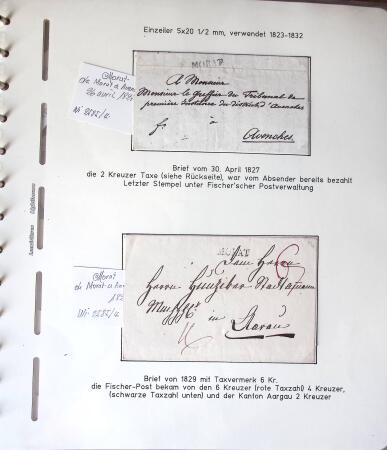 Einzeiler 5x20 1/2 mm, verwendet 1823-1832
Morat
de Morat a
26 avril
Nr 2585/a
MORAT
A Monsieur
Monsieur le Greffier du Tribunal de
première instance du district d'Avenches
à
Avenches
Brief vom 30. April 1827
die 2 Kreuzer Taxe (siehe Rückseite), war vom Absender bereits bezahlt
Letzter Stempel unter Fischer'scher Postverwaltung
Morat
de Morat a
Nr 2585/a
MORAT
Dem Herrn
Herrn Hunziker Stadtammann
in
Aarau
6
Brief von 1829 mit Taxvermerk 6 Kr.
die Fischer-Post bekam von den 6 Kreuzer (rote Taxzahl) 4 Kreuzer,
(schwarze Taxzahl unten) und der Kanton Aargau 2 Kreuzer